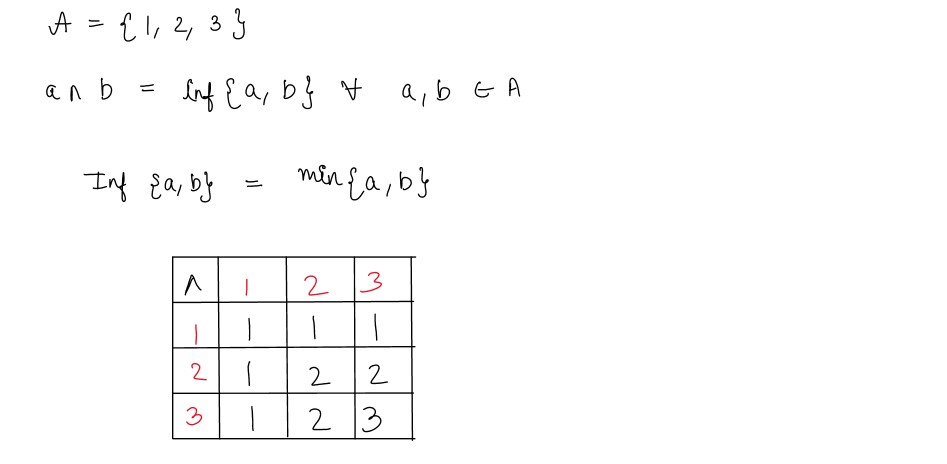 A = {1, 2, 3}
a ∧ b = inf{a, b} ∀ a, b ∈ A
Inf {a, b} = min{a, b}
∧ 1 2 3
1 1 1 1
2 1 2 2
3 1 2 3